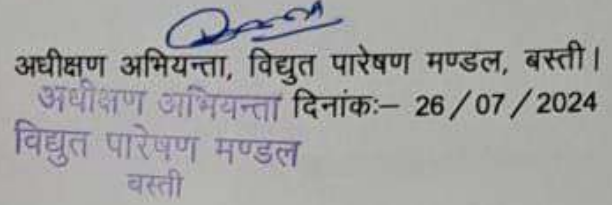 अधीक्षण अभियन्ता, विद्युत पारेषण मण्डल, बस्ती।
अधीक्षण अभियन्ता दिनांकः– 26/07/2024
विद्युत पारेषण मण्डल
बस्ती